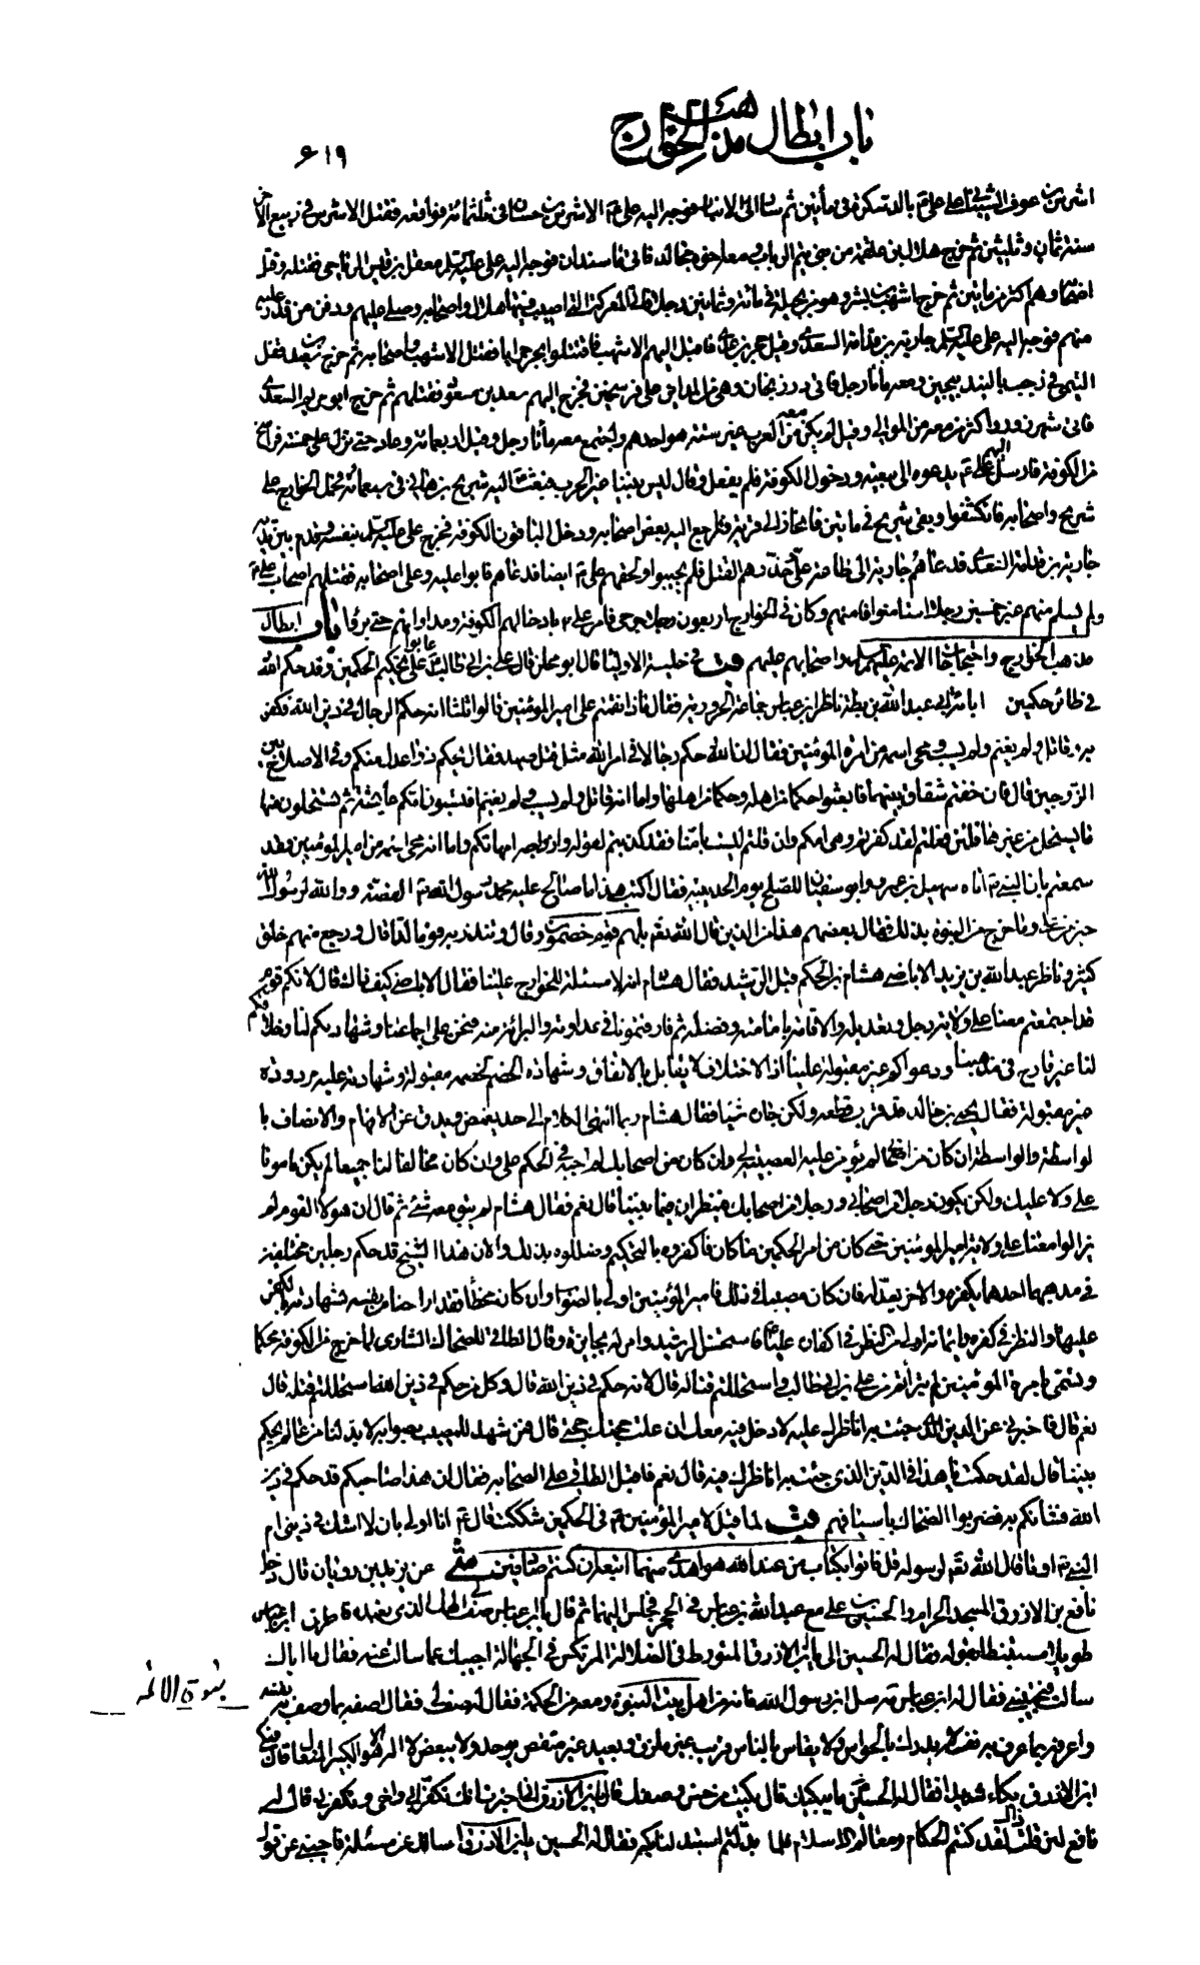 باب ابطال مذهب الخوارج
٦١٩
اشرس بن عوف الشيباني على علي ع بالدسكرة في مأتين ثم سار الى الانبار فوجه اليه علي ع الاشرس بن حسان في ثلثمائة فواقعه فقتل الاشرس في ربيع الاخر
سنة ثمان وثلثين ثم خرج هلال بن علقمة من بني تيم الرباب ومعه اخوه مجالد فاتى ماسبذان فوجه اليه علي عليه السلم معقل بن قيس الرياحي فقتله وقتل
اصحابه وهم اكثر من مأتين ثم خرج اشهب بن بشر وهو من بجيلة في مائة وثمانين رجلا فاتى المعركة التي اصيب فيها هلال واصحابه وصلى عليهم ودفن من قدر عليه
منهم فوجه اليه علي عليه السلم جارية بن قدامة السعدي وقيل حجر بن عدي فاقبل اليهم الاشهب فاقتتلوا بجرجرايا فقتل الاشهب واصحابه ثم خرج سعيد بن قفل
التيمي في رجب بالبندنيجين ومعه مأتا رجل فاتى درزنجان وهي من المداين على فرسخين فخرج اليهم سعد بن مسعود فقتلهم ثم خرج ابو مريم السعدي
فاتى شهرزور واكثر من معه من الموالي وقيل لم يكن معه من العرب غير ستة هو احدهم واجتمع معه مأتا رجل وقيل اربعمائة وعاد حتى نزل على خمسة فراسخ
من الكوفة فارسل اليه علي ع يدعوه الى بيعته ودخول الكوفة فلم يفعل وقال ليس بيننا غير الحرب فبعث اليه شريح بن هاني في سبعمائة فحمل الخوارج على
شريح واصحابه فانكشفوا وبقي شريح في مأتين فانحاز الى قرية فتراجع اليه بعض اصحابه ودخل الباقون الكوفة فخرج علي عليه السلم بنفسه وقدم بين يديه
جارية بن قدامة السعدي فدعاهم جارية الى طاعة علي وحذرهم القتل فلم يجيبوا ولحقهم علي ع ايضا فدعاهم فابوا عليه وعلى اصحابه فقتلهم اصحاب علي ع
ولم يسلم منهم غير خمسين رجلا استامنوا فامنهم وكان في الخوارج اربعون رجلا جرحى فامر علي ع بادخالهم الكوفة ومداواتهم حتى برؤا باب ابطال
مذهب الخوارج واحتجاجات الائمة عليهم السلم واصحابهم عليهم قب في حلية الاوليا قال ابو مجلز قال علي بن ابي طالب عابوا على تحكيم الحكمين وقد حكم الله
في طائر حكمين ابانة ابي عبد الله بن بطة ناظر ابن عباس جماعة الحرورية فقال ماذا نقمتم على امير المؤمنين قالوا ثلثا انه حكم الرجال في دين الله فكفر
به وقاتل ولم يغنم ولم يسب ومحى اسمه من امرة المؤمنين فقال ان الله حكم رجالا في امر الله مثل قتل صيد فقال يحكم به ذوا عدل منكم وفي الاصلاح بين
الزوجين قال فان خفتم شقاق بينهما فابعثوا حكما من اهله وحكما من اهلها واما انه قاتل ولم يسب ولم يغنم افتسبون امكم عايشة ثم تستحلون منها
ما يستحل من غيرها فلئن فعلتم لقد كفرتم وهي امكم وان قلتم ليست بامنا فقد كذبتم لقوله وازواجه امهاتهم واما انه محى اسمه من امير المؤمنين وقد
سمعتم بان النبي ع اتاه سهيل بن عمرو وابو سفيان للصلح يوم الحديبية فقال اكتب هذا ما صالح عليه محمد رسول الله ص القصة ووالله لرسول الله
خير من علي وما خرج من النبوة بذلك فقال بعضهم هذا من الذين قال الله تعم بل هم قوم خصمون وقال وتنذر به قوما لدا قال ورجع منهم خلق
كثير وناظر عبد الله بن يزيد الاباضي هشام بن الحكم قبل الرشيد فقال هشام انه لا مسئلة للخوارج علينا فقال الاباضي كيف ذلك قال لانكم قوم
قد اجتمعتم معنا على ولاية رجل وتعديله والاقرار بامامته وفضله ثم فارقتمونا في عداوته والبرائة منه فنحن على اجماعنا وشهادتكم لنا وخلافكم
لنا غير قادح في مذهبنا ودعواكم غير مقبولة علينا اذ الاختلاف لا يقابل بالاتفاق وشهادة الخصم لخصمه مقبولة وشهادته عليه مردودة
غير مقبولة فقال يحيى بن خالد قد قرب قطعه ولكن جاره شيئا فقال هشام ربما انتهى الكلام الى حد يغمض ويدق عن الافهام والانصاف با
لواسطة والواسطة ان كان من اصحابي لم يؤمن عليه العصبية لي وان كان من اصحابك لم اجبه في الحكم علي وان كان مخالفا لنا جميعا لم يكن مامونا
علي ولا عليك ولكن يكون رجلا من اصحابي ورجلا من اصحابك فينظران فيما بيننا قال نعم فقال هشام لم يبق معه شئ ثم قال ان هؤلاء القوم لم
يزالوا معنا على ولاية امير المؤمنين حتى كان من امر الحكمين ما كان فاكفروه بالتحكيم وضللوه بذلك والان هذا الشيخ قد حكم رجلين مختلفين
في مذهبهما احدهما يكفره والاخر يعدله فان كان مصيبا في ذلك فامير المؤمنين اولى بالصواب وان كان مخطأ فقد اراحنا من نفسه بشهادته بالكفر
عليها والنظر في كفره وايمانه اولى من النظر في اكفاره عليا ع فاستحسن الرشيد وامر له بجايزة وقال الطاقي للضحاك الشاري لما خرج من الكوفة محكما
وتسمى بامرة المؤمنين لم تبرأتم من علي بن ابي طالب واستحللتم قتاله قال لانه حكم في دين الله قال وكل من حكم في دين الله استحللتم قتله قال
نعم قال فاخبرني عن الدين الذي جئت به اناظرك عليه لادخل فيه معك ان علت حجتك حجتي قال فمن شهد للمصيب بصوابه لا بد لنا من عالم يحكم
بيننا قال لقد حكمت يا هذا في الدين الذي جئت به اناظرك فيه قال نعم فاقبل الطاقي على اصحابه فقال ان هذا صاحبكم قد حكم في دين
الله فشأنكم به فضربوا الضحاك باسيافهم قب لما قيل لامير المؤمنين ع في الحكمين شككت قال ع انا اولى بان لا اشك في ديني ام
النبي ع او ما قال الله تعم لرسوله قل فاتوا بكتاب من عند الله هو اهدى منهما اتبعه ان كنتم صادقين شى عن يزيد بن رويان قال دخل
نافع بن الازرق المسجد الحرام والحسين بن علي مع عبد الله بن عباس في الحجر فجلس اليهما ثم قال يا ابن عباس صف لي الهك الذي تعبده فاطرق ابن عباس
طويلا مستبطئا بقوله فقال له الحسين الي يا ابن الازرق المتورط في الضلالة المرتكس في الجهالة اجيبك عما سالت عنه فقال ما اياك
سالت فتجيبني فقال له ابن عباس مه سل ابن رسول الله فانه من اهل بيت النبوة ومعه من الحكمة فقال له صف لي فقال اصفه بما وصف به نفسه
واعرفه بما عرف به نفسه لا يدرك بالحواس ولا يقاس بالناس قريب غير ملزق وبعيد غير متقص يوحد ولا يبعض لا اله الا هو الكبير المتعال قال فبكى
ابن الازرق بكاء شديدا فقال له الحسين ع ما يبكيك قال بكيت من حسن وصفك قال يا ابن الازرق اني اخبرت انك تكفر ابي واخي وتكفرني قال له
نافع لئن قلت ذاك لقد كنتم الحكام ومعالم الاسلام فلما بدلتم استبدلنا بكم فقال له الحسين يا ابن الازرق اسالك عن مسئلة فاجبني عن قول
بنبوة الائمه